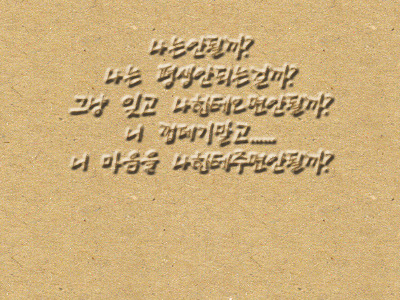 나는안될까?
나는 평생안되는건까?
그냥 잊고 나한테오면안될까?
니 껍데기말고.....
니 마음을 나한테주면안될까?